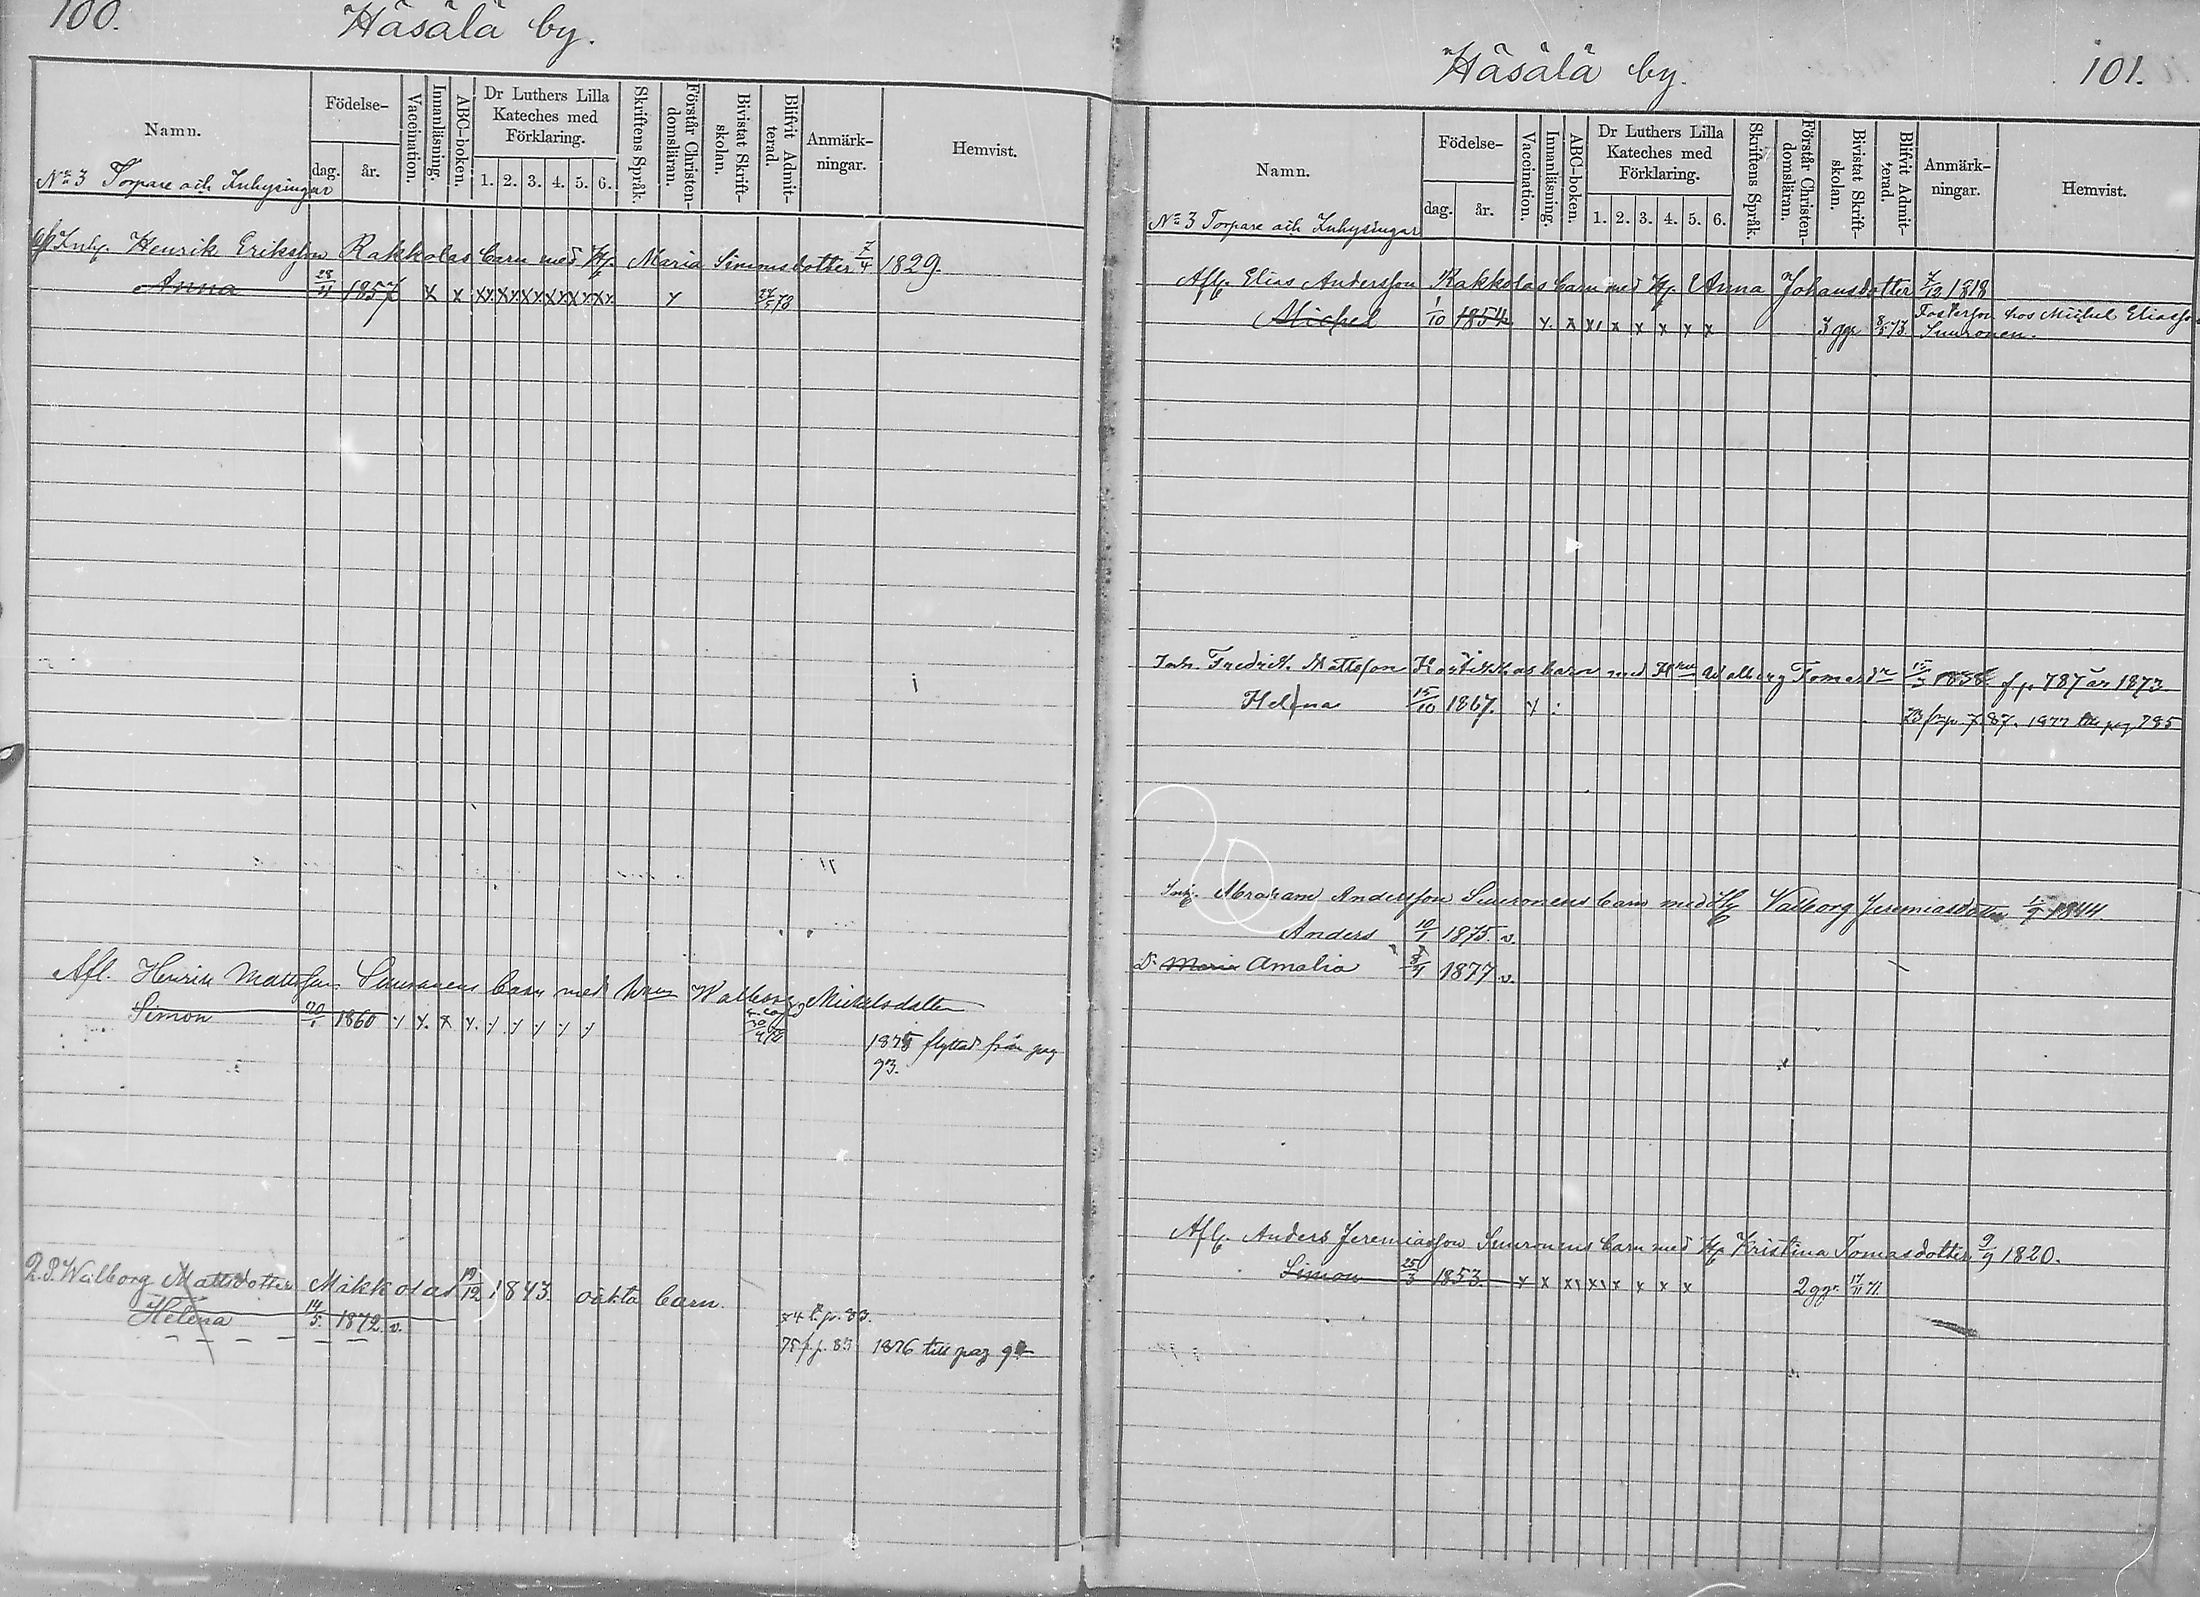 100.
Häsälä by.
Namn.
Födelse-
dag.
år.
Vaccination.
Innanläsning.
ABC-boken.
Dr Luthers Lilla
Kateches med
Förklaring.
1. 2. 3. 4. 5. 6.
Skriftens Språk.
Förstår Christen-
domsläran.
Bivistat Skrift-
skolan.
Blifvit Admit-
terad.
Anmärk-
ningar.
Hemvist.
No 3 Torpare och Inhysingar
Inh. Henrik Eriksson Rakkolas barn med H. Maria Simonsdotter 7/4 1829.
Anna 28/11 1857 x x xx xx xx xx xx xx x 27/5 73
Afl. Henrik Mattsson Suuronens barn med Walborg Mickelsdotter
Simon 20/1 1860
1875 flyttad från pag
93.
Q.P. Walborg Mattsdotter Mikkolas 19/12 1843. oäkta barn.
Helena 14/5. 1872. v.
74 t. p. 83.
75 f. p. 83 1876 till pag
101.
Häsälä by.
Namn.
Födelse-
dag.
år.
Vaccination.
Innanläsning.
ABC-boken.
Dr Luthers Lilla
Kateches med
Förklaring.
1. 2. 3. 4. 5. 6.
Skriftens Språk.
Förstår Christen-
domsläran.
Bivistat Skrift-
skolan.
Blifvit Admit-
terad.
Anmärk-
ningar.
Hemvist.
No 3 Torpare och Inhysingar
Afl. Elias Andersson Rakkolas barn med H. Anna Johansdotter 7/12 1818
Michel 1/10 1854 x x xx x x x x x 3 ggr 8/5 73. Fosterson hos Michel Eliasson
Suuronen.
Inh. Fredrik Mattsson barn med Walborg Tomasdr 1838 f. p. 787 år 1873
Helena 15/10 1867.
p. 787. 1877 pag 785
Inh. Abraham Andersson Suuronens barn med H. Valborg Jeremiasdotter 1844.
Anders 10/1 1875. v.
Dr Maria Amalia 8/4 1877 v.
Afl. Anders Jeremiasson Suuronens barn med H. Kristina Tomasdotter 9/9 1820.
Simon 25/3 1853. x x xx xx x x x x 2 ggr. 17/11 71.